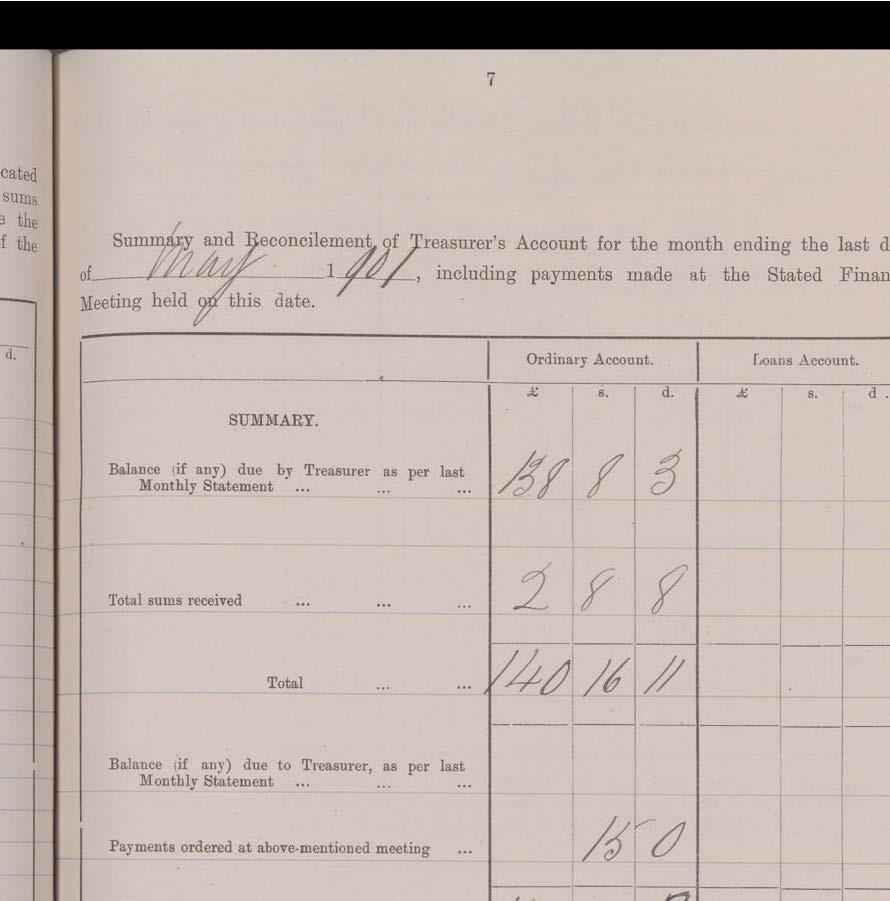 7
cated
sums
e the
f the
d.
Summary and Reconcilement of Treasurer's Account for the month ending the last d
of May 1901, including payments made at the Stated Finan
Meeting held on this date.
Ordinary Account. Loans Account.
£ s. d. £ s. d.
SUMMARY.
Balance (if any) due by Treasurer as per last
Monthly Statement ... ... ... 138 8 3
Total sums received ... ... ... 2 8 8
Total ... ... 140 16 11
Balance (if any) due to Treasurer, as per last
Monthly Statement ... ... ...
Payments ordered at above-mentioned meeting ... 15 0